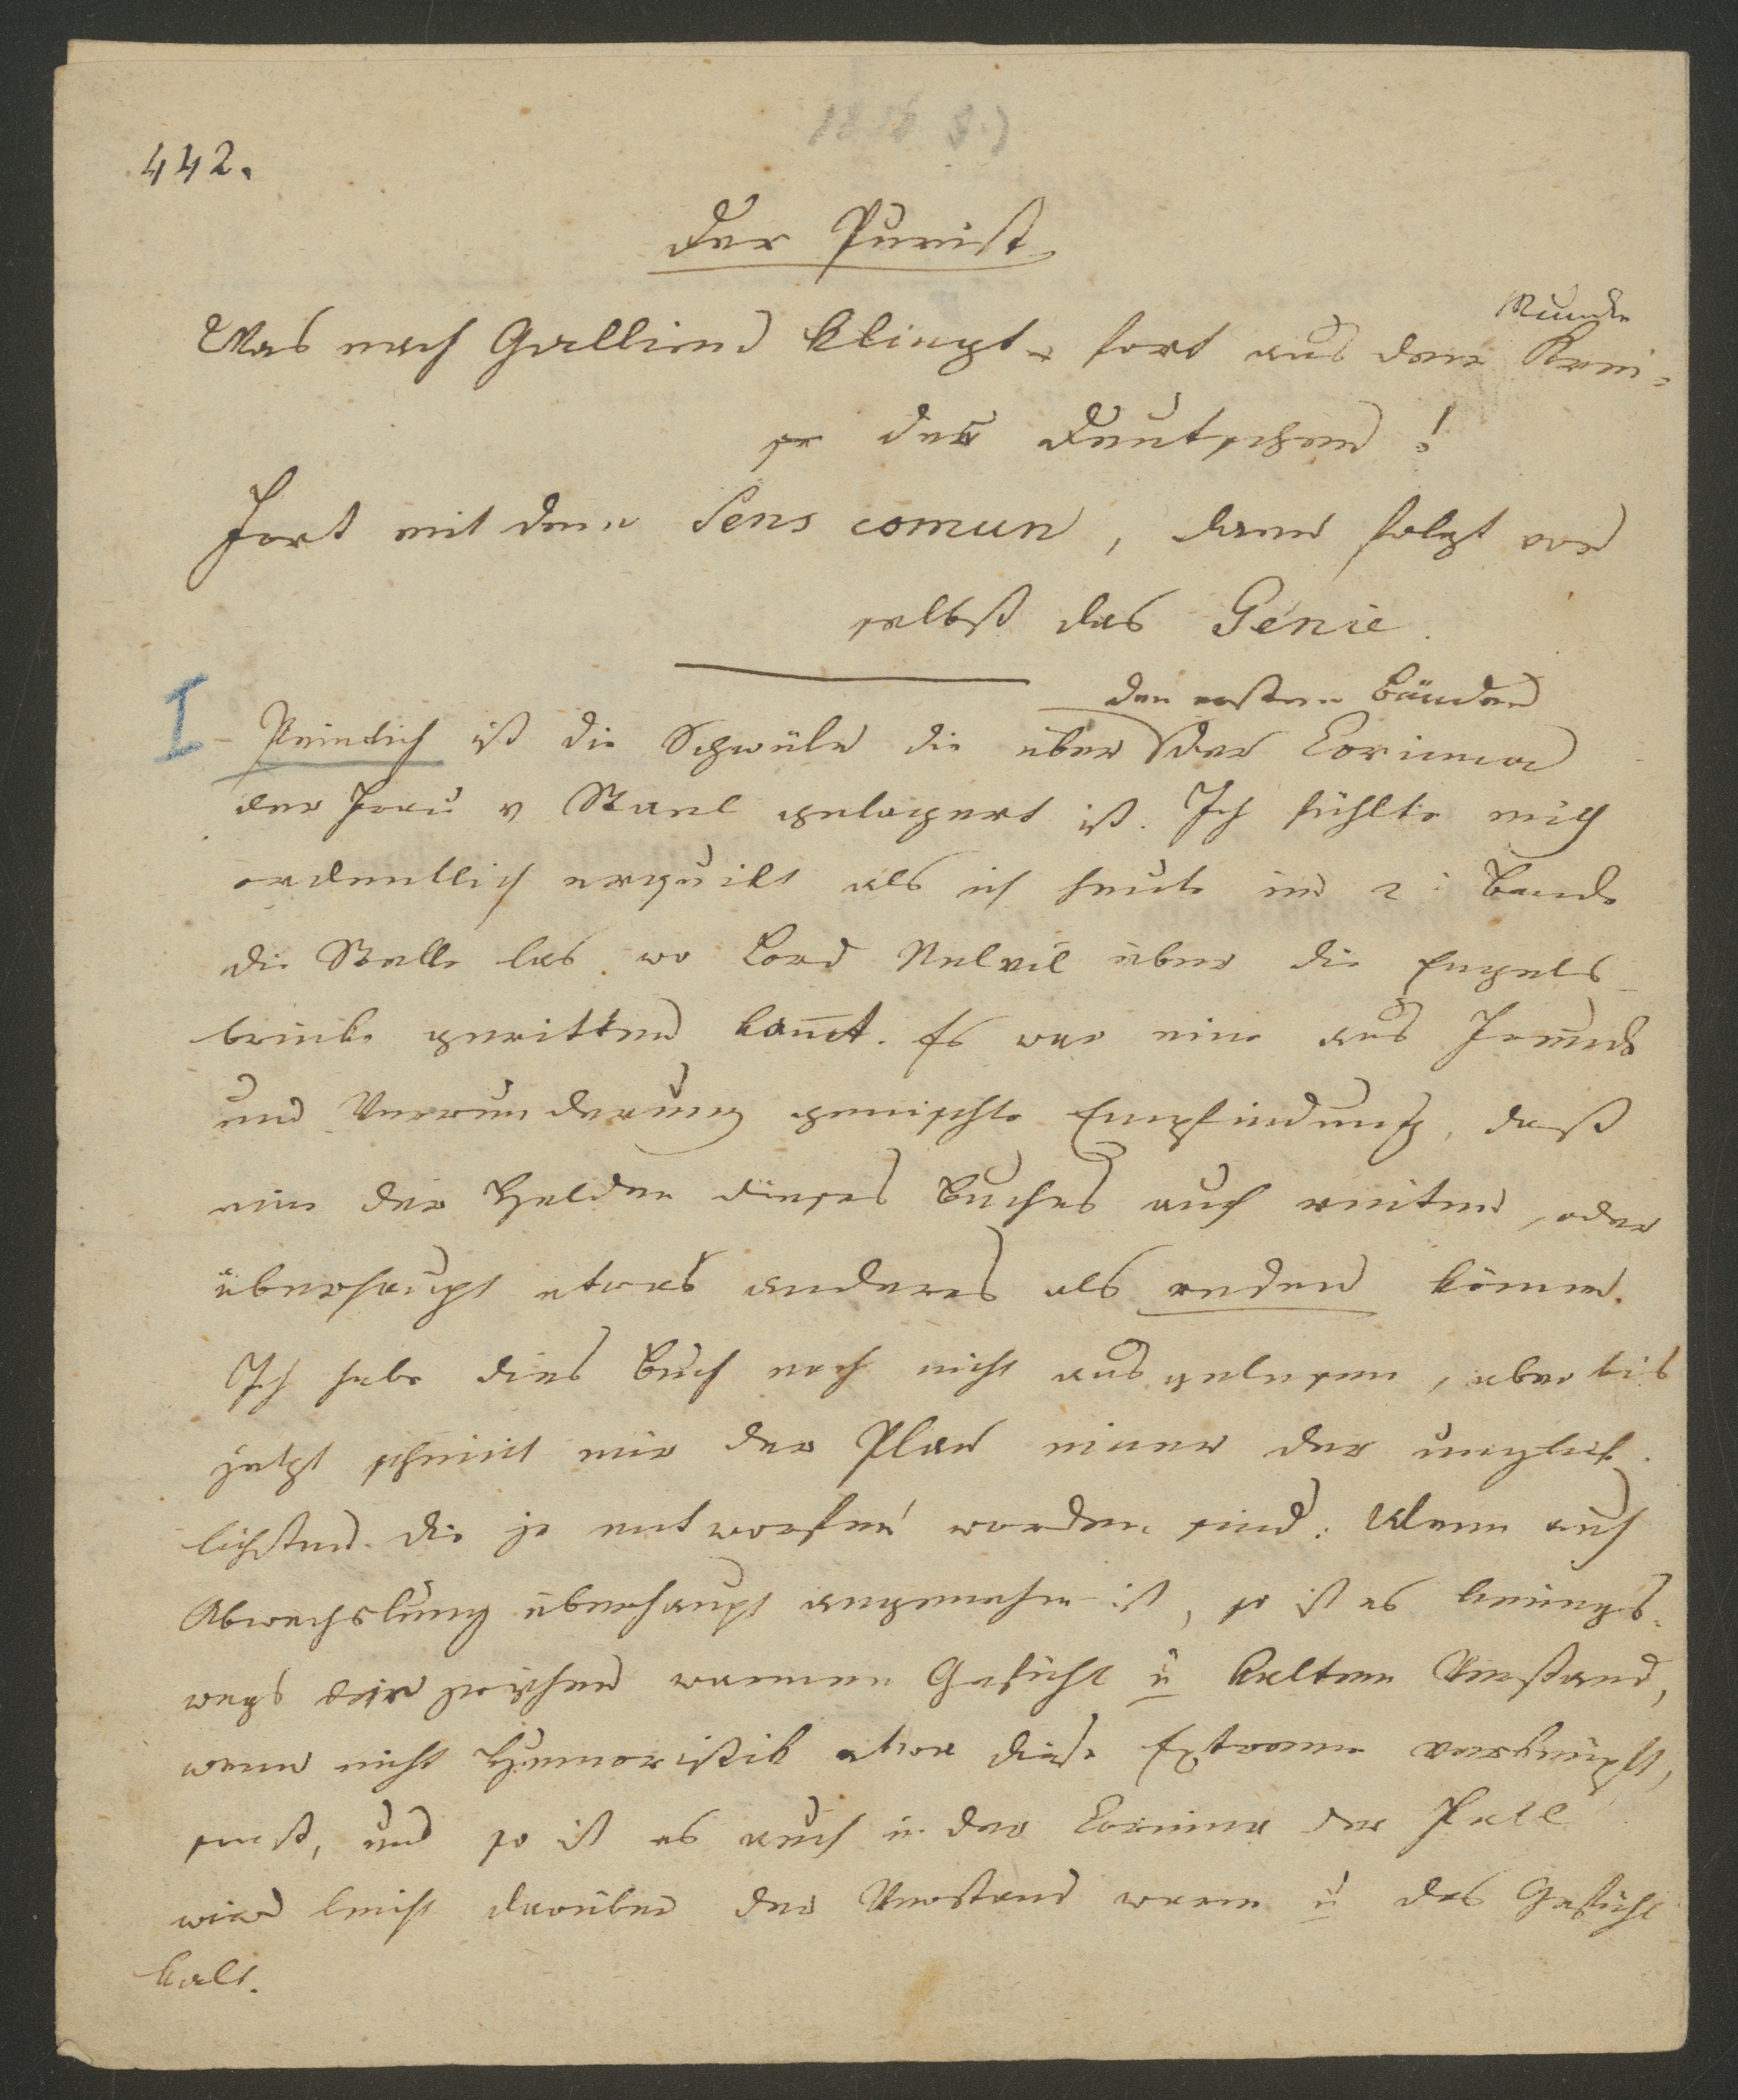 442.
Der Purist
Munde
Was nach Gallien klingt fort aus dem Krei-
se der Deutschen!
Fort mit dem Sens comun, dann folgt von
selbst das Génie.
den ersten Bänden
I Peinlich ist die Schwüle die über der Corinna
der Frau v Stael gelagert ist. Ich fühlte mich
ordentlich erquikt als ich heute im 2: Bande
die Stelle las wo Lord Nelvil über die Engels-
brücke geritten kam̅t. Es war eine aus Freude
und Verwunderung gemischte Empfindung, daß
nun der Helden dieses Buches auch reiten, oder
überhaupt etwas anderes als reden könne.
Ich habe dies Buch noch nicht ausgelesen, aber bis
jetzt scheint mir der Plan einer der unglük-
lichsten die je entworfen worden sind. Wenn auch
Abwechslung überhaupt angenehm ist, so ist es keines-
wegs die zwischen warmen Gefühl u kaltem Verstand,
wenn nicht Humoristik etwa diese Extreme verknüpft,
sonst, und so ist es auch in der Corinna der Fall
wird leicht darüber der Verstand warm u das Gefühl
kalt.